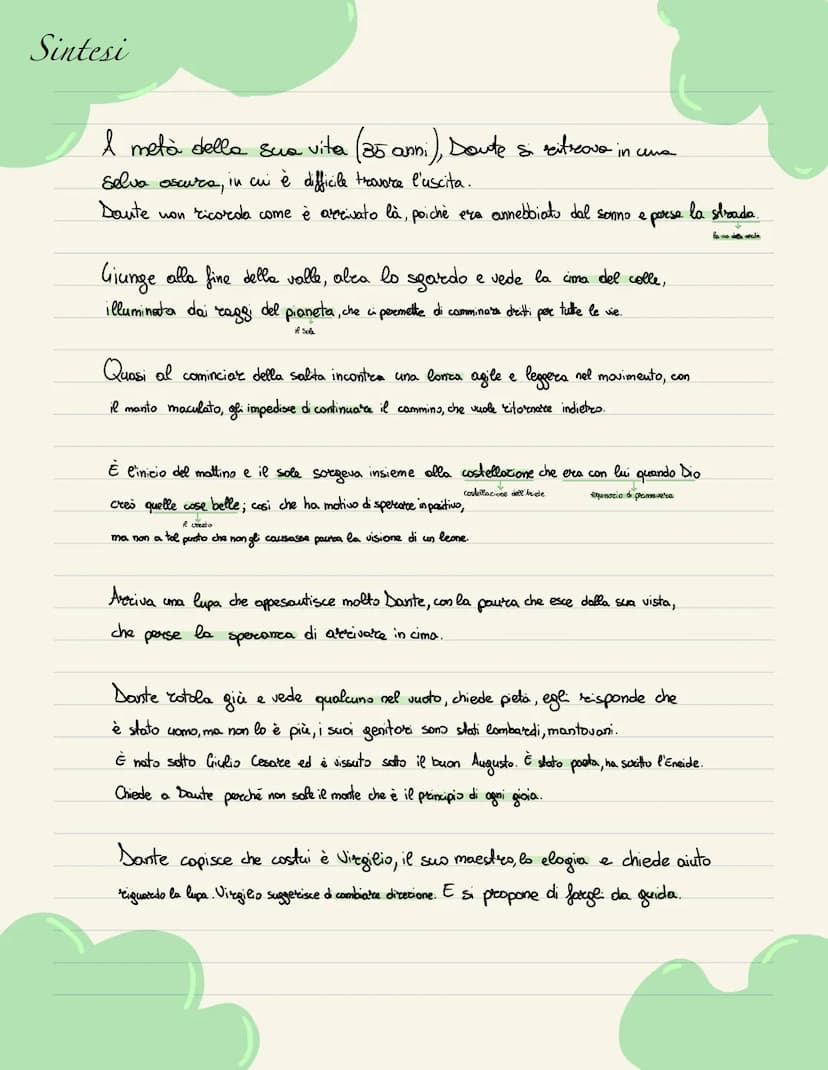 Sintesi
A metà della sua vita (35 anni), Dante si ritrova in una
selva oscura, in cui è difficile trovare l'uscita.
Dante non ricorda come è arrivato là, poichè era annebbiato dal sonno e perse la strada.
la via della verità
Giunge alla fine della valle, alza lo sgardo e vede la cima del colle,
illuminata dai raggi del pianeta, che ci permette di camminare dritti per tutte le vie.
il sole
Quasi al cominciar della salita incontra una lonza agile e leggera nel movimento, con
il manto maculato, gli impedisce di continuare il cammino, che vuole ritornare indietro.
È l'inizio del mattino e il sole sorgeva insieme alla costellazione che era con lui quando Dio
costellazione dell'Ariete equinozio di primavera
creò quelle cose belle; così che ha motivo di sperare in positivo,
il creato
ma non a tal punto che non gli causasse paura la visione di un leone.
Arriva una lupa che appesantisce molto Dante, con la paura che esce dalla sua vista,
che perse la speranza di arrivare in cima.
Dante rotola giù e vede qualcuno nel vuoto, chiede pietà, egli risponde che
è stato uomo, ma non lo è più, i suoi genitori sono stati lombardi, mantovani.
È nato sotto Giulio Cesare ed è vissuto sotto il buon Augusto. È stato poeta, ha scritto l'Eneide.
Chiede a Dante perché non sale il monte che è il principio di ogni gioia.
Dante capisce che costui è Virgilio, il suo maestro, lo elogia e chiede aiuto
riguardo la lupa. Virgilio suggerisce di cambiare direzione. E si propone di fargli da guida.